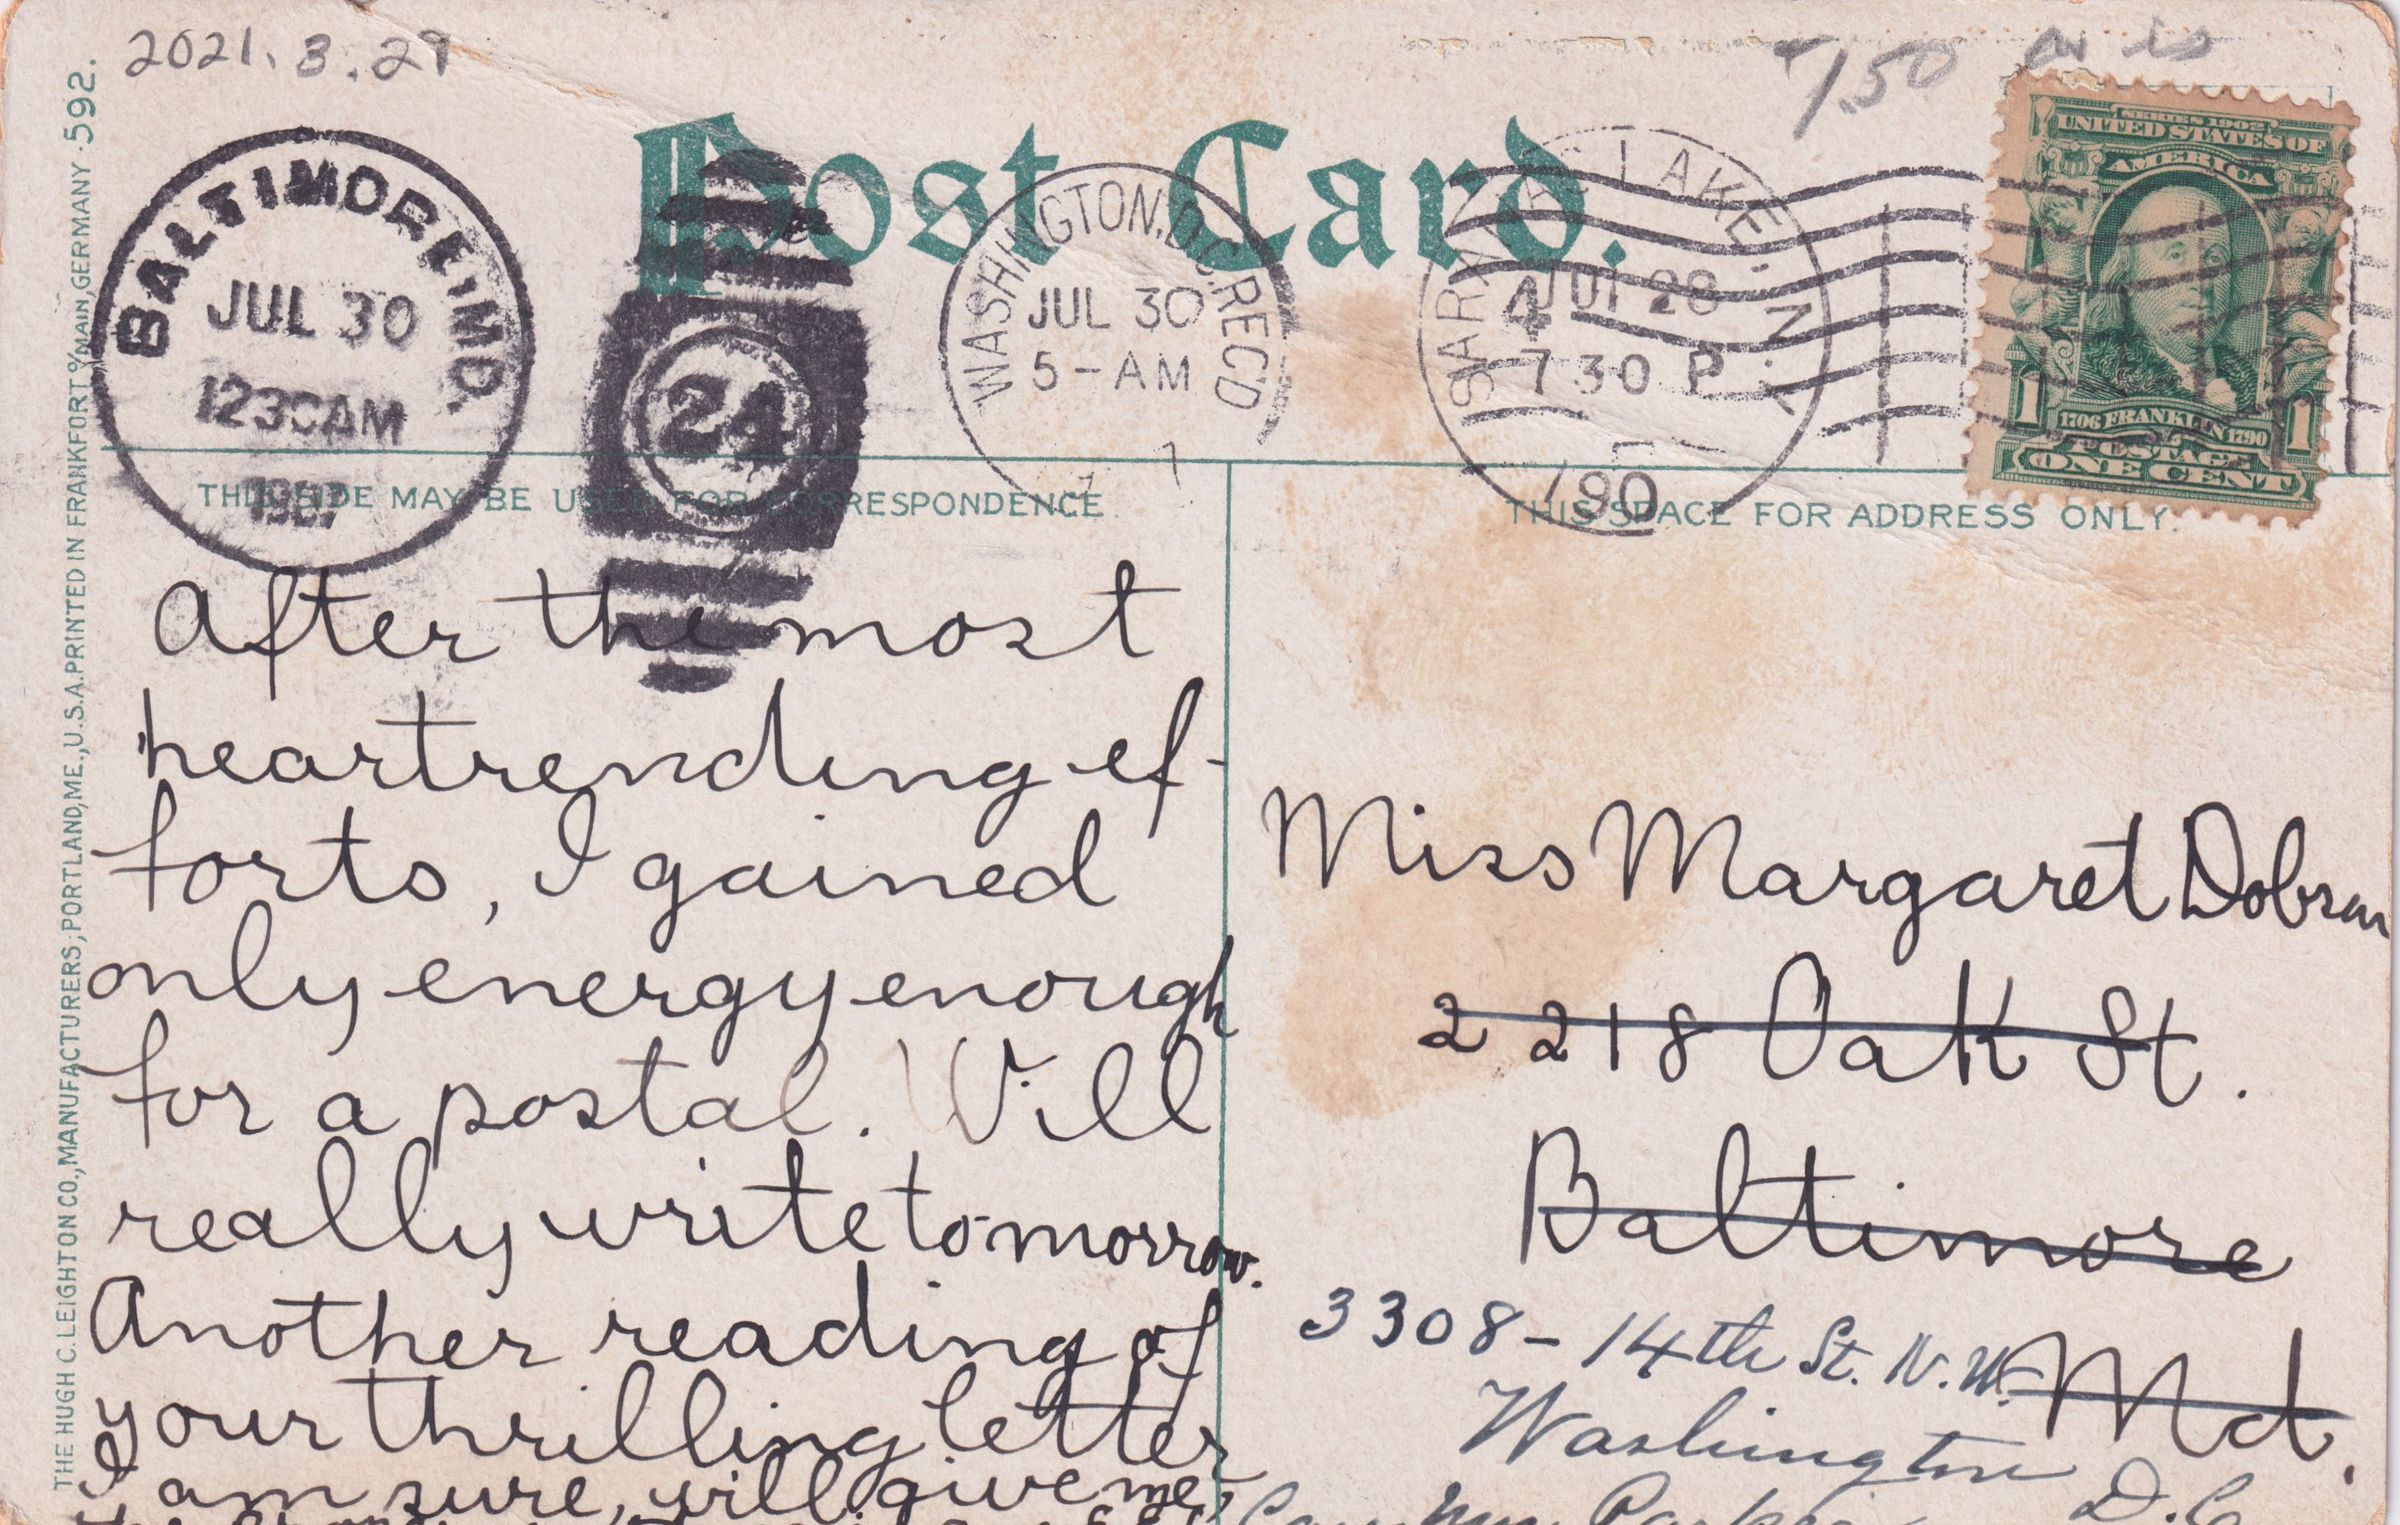 2021.3.29
7.50 as is
THE HUGH C. LEIGHTON CO., MANUFACTURERS, PORTLAND, ME., U.S.A. PRINTED IN FRANKFORT o/MAIN, GERMANY. 592.
Post Card.
BALTIMORE, MD.
JUL 30
1230AM
1907
24
WASHINGTON, D.C. REC'D
JUL 30
5-AM
7
SARANAC LAKE. N.Y.
JUL 28
730 P
190
SERIES 1902
UNITED STATES OF
AMERICA
1 1706 FRANKLIN 1790 1
POSTAGE
ONE CENT
THIS SIDE MAY BE USED FOR CORRESPONDENCE.
THIS SPACE FOR ADDRESS ONLY.
After the most
heartrending ef-
forts, I gained
only energy enough
for a postal. Will
really write to-morrow.
Another reading of
your thrilling letter
I am sure, will give me
Miss Margaret Dobson
2218 Oak St.
Baltimore
Md.
3308 - 14th St. N.W.
Washington
D.C.